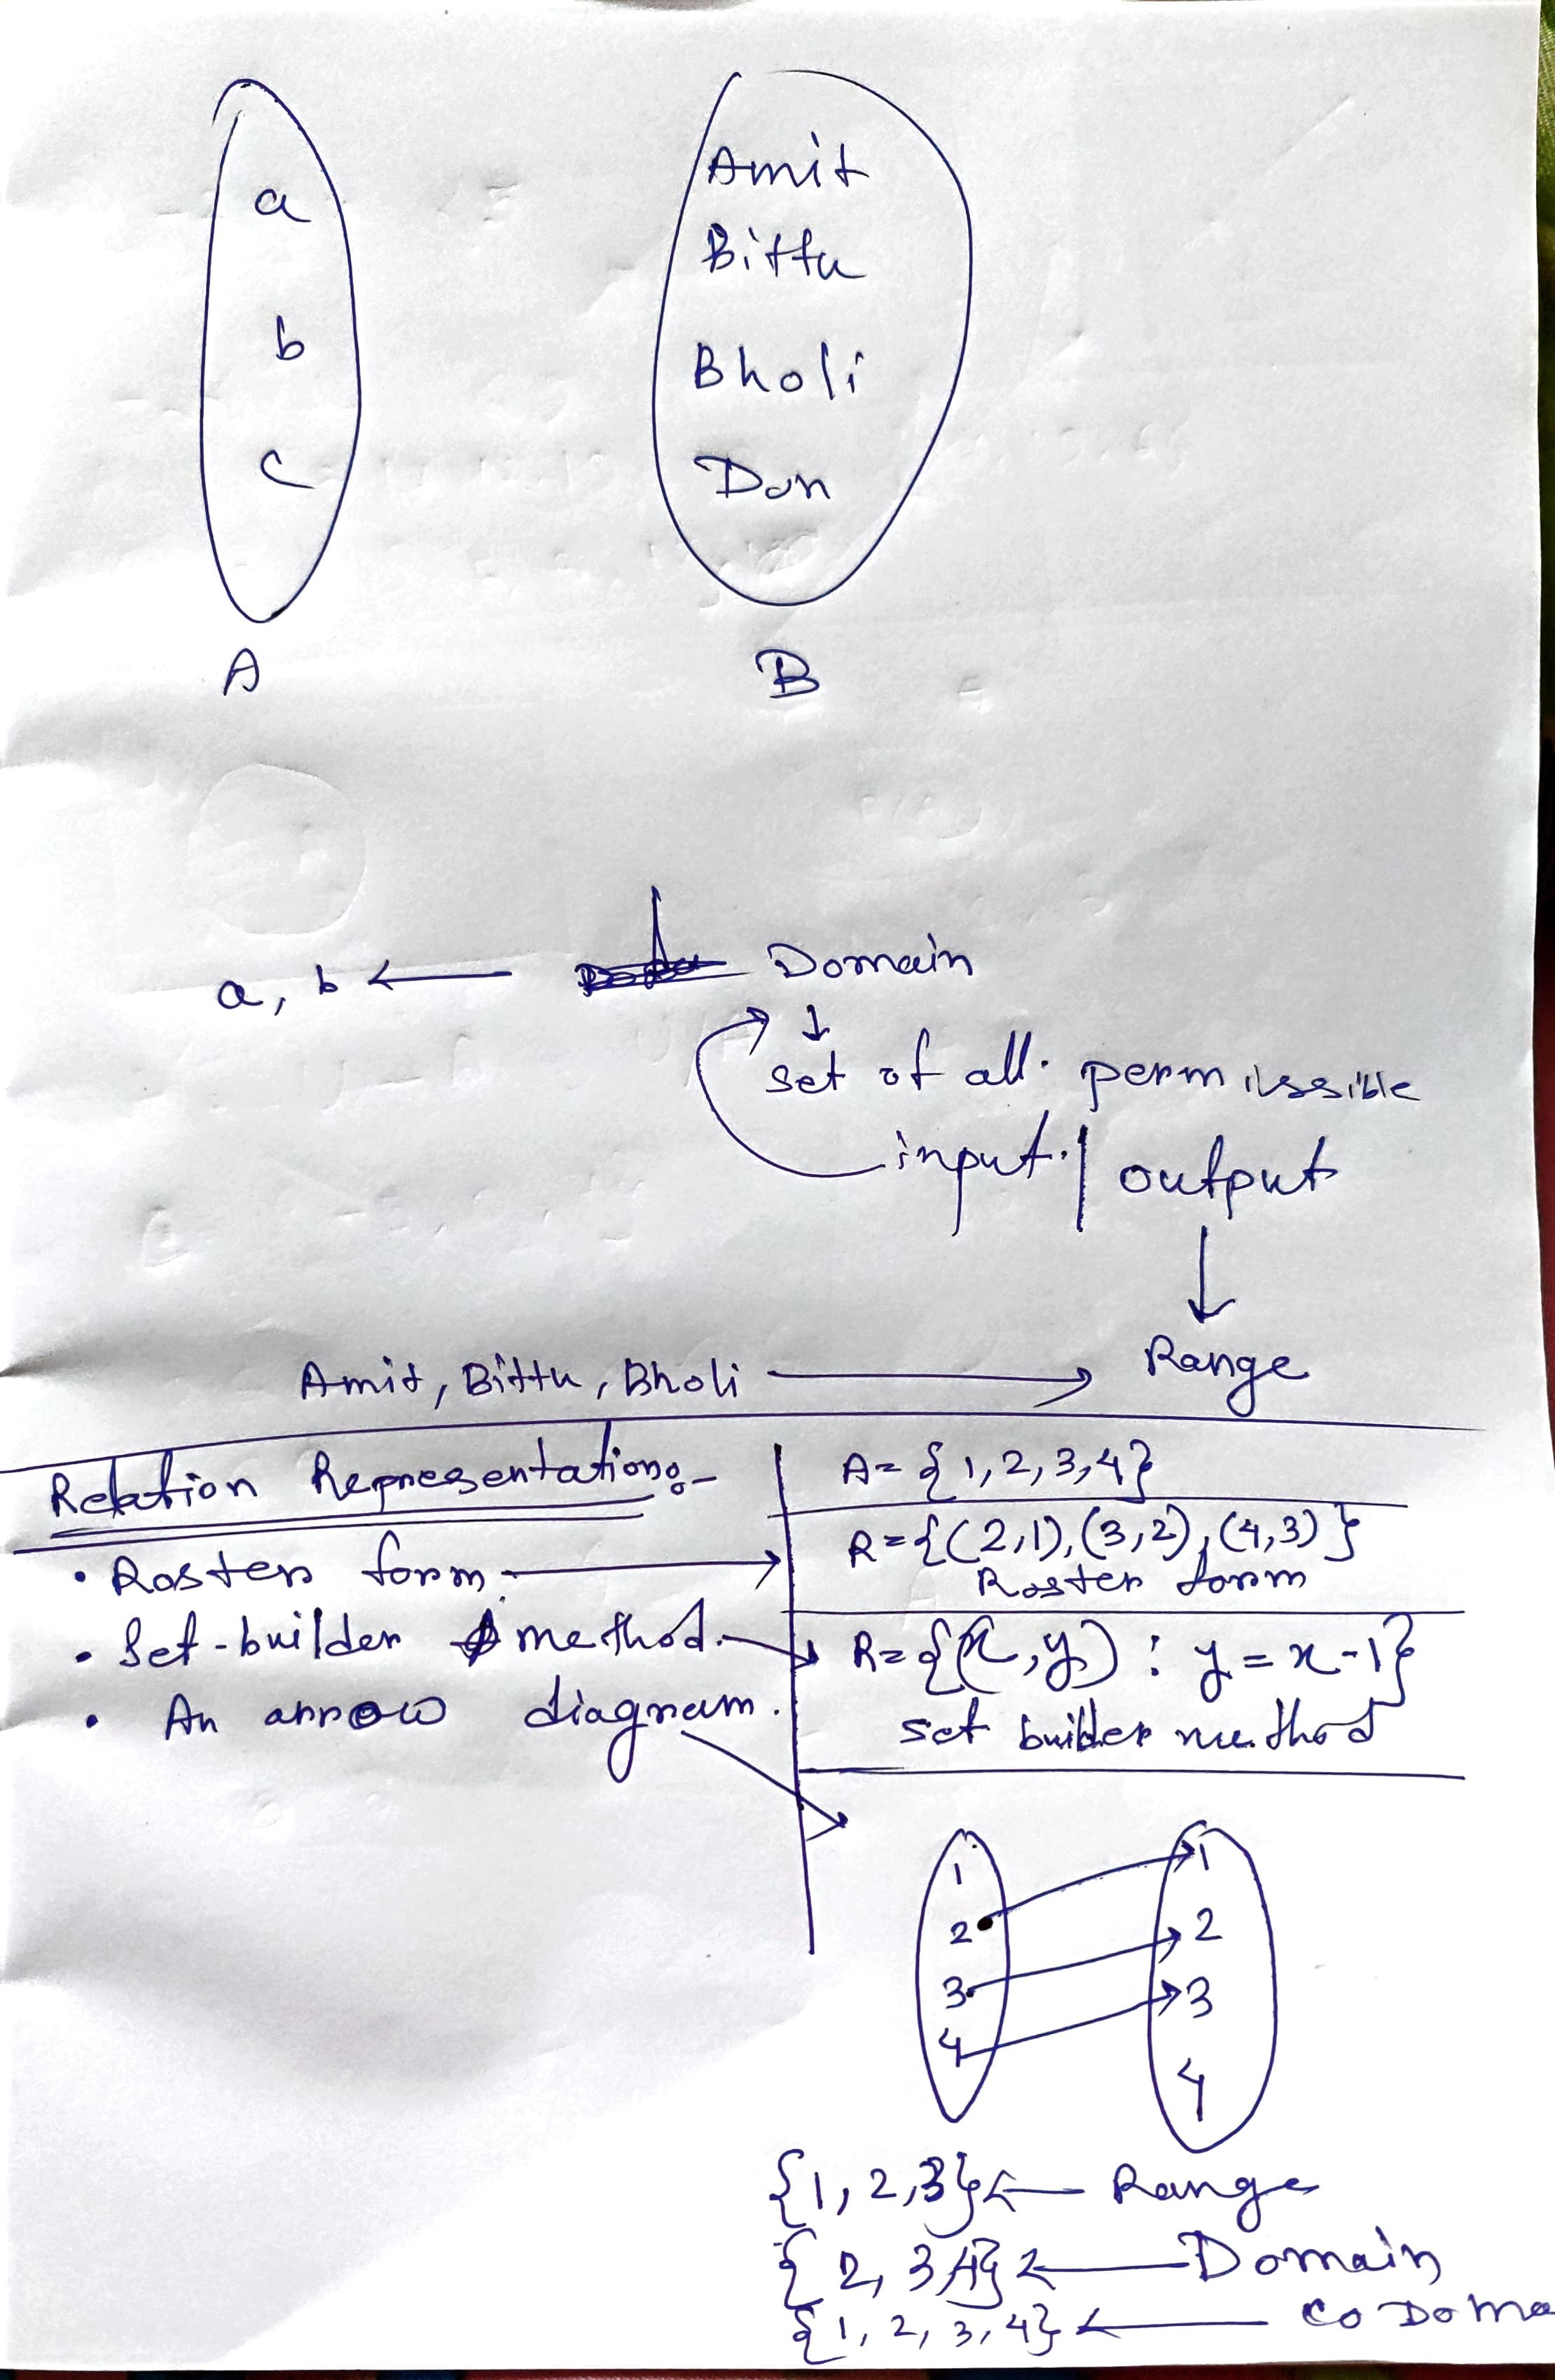 a
b
c
A
Amit
Bittu
Bholi
Don
B
a, b ← Domain
↓
set of all. permissible
input. | output
↓
Amit, Bittu, Bholi → Range
Relation Representation:-
• Roster form. →
• Set-builder method. →
• An arrow diagram.
A = {1,2,3,4}
R = {(2,1), (3,2), (4,3)}
Roster form
R = {(x, y) : y = x-1}
set builder method
1
2
3
4
1
2
3
4
{1, 2, 3} ← Range
{2, 3, 4} ← Domain
{1, 2, 3, 4} ← Co Doma